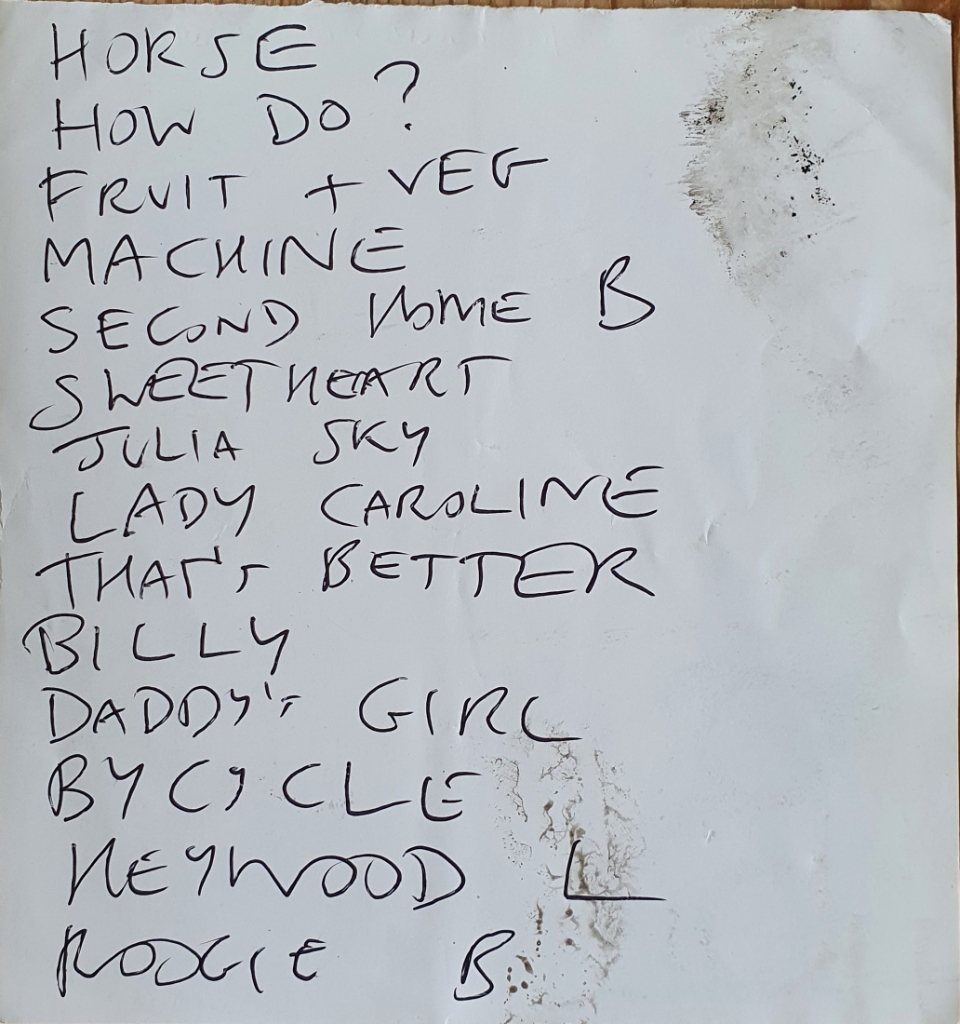 HORSE
HOW DO?
FRUIT + VEG
MACHINE
SECOND HOME B
SWEETHEART
JULIA SKY
LADY CAROLINE
THAT'S BETTER
BILLY
DADDY'S GIRL
BYCYCLE
HEYWOOD L
ROOGIE B